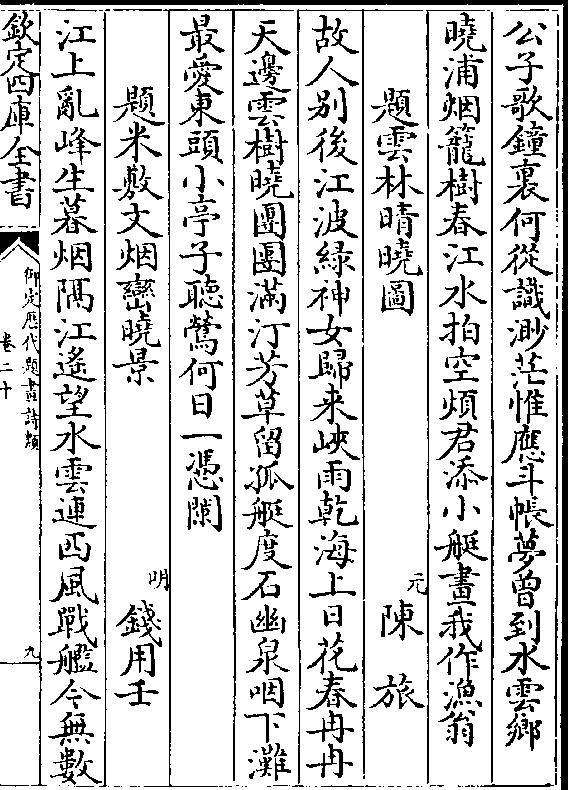 公子歌鐘裏何從識渺茫惟應斗帳夢曾到水雲鄉
曉浦烟籠樹春江水拍空煩君添小艇畫我作漁翁
題雲林晴曉圖
元 陳旅
故人別後江波綠神女歸来峽雨乾海上日花春冉冉
天邊雲樹曉團團滿汀芳草留孤艇度石幽泉咽下灘
最愛東頭小亭子聽鶯何日一憑闌
題米敷文烟巒曉景
明 錢用壬
江上亂峰生暮烟隔江遙望水雲連西風戰艦今無數
欽定四庫全書
御定歷代題畫詩類
卷二十
九